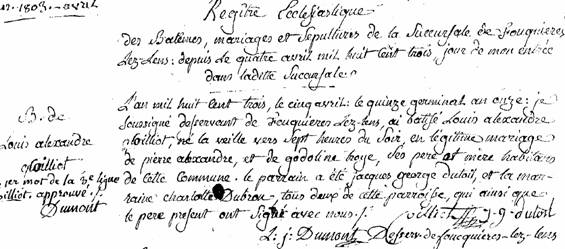 an. 1803. avril
Registre Ecclesiastique
des Batêmes, mariages et Sépultures de la Succursale de Fouquieres
Lez-Lens: depuis le quatre avril mil huit cent trois, jour de mon entrée
dans ladite Succursale.
B. de
Louis alexandre
1er mot de la 2e ligne
approuvé.
Dumont
L'an mil huit cent trois, le cinq avril: le quinze germinal an onze: je
soussigné desservant de fouquieres Lez-lens, ai batisé Louis alexandre
né la veille vers Sept heures du Soir, en légitime mariage
de pierre alexandre, et de godoline hoye, ses pere et mere habitans
de cette Commune. le parrain a été jacques george dutoit, et la mar-
raine charlotte Dubron, tous deux de cette parroisse, qui ainsi que
le pere present ont Signé avec nous.
j-g-dutoit
L: j: Dumont Desserv. de fouquieres-lez-lens